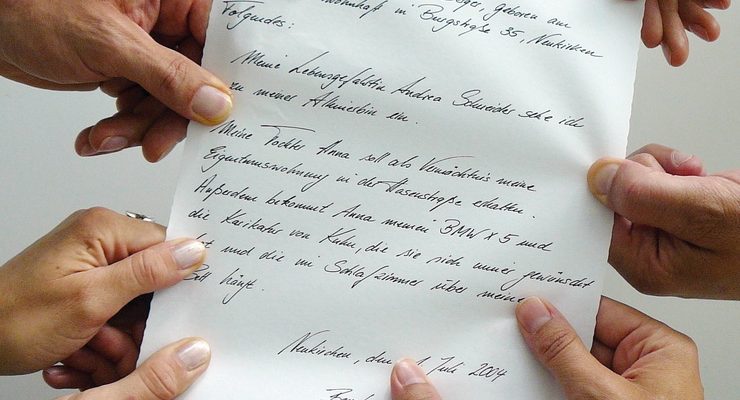 geboren am
wohnhaft in Burgstraße 35, Neukirchen
Folgendes:
Meine Lebensgefährtin Andrea Schneider setze ich
zu meiner Alleinerbin ein.
Meine Tochter Anna soll als Vermächtnis meine
Eigentumswohnung in der Hasenstraße erhalten.
Außerdem bekommt Anna meinen BMW X5 und
die Karikatur von Kuhn, die sie sich immer gewünscht
hat und die im Schlafzimmer über meinem
Bett hängt.
Neukirchen, den 1. Juli 2004